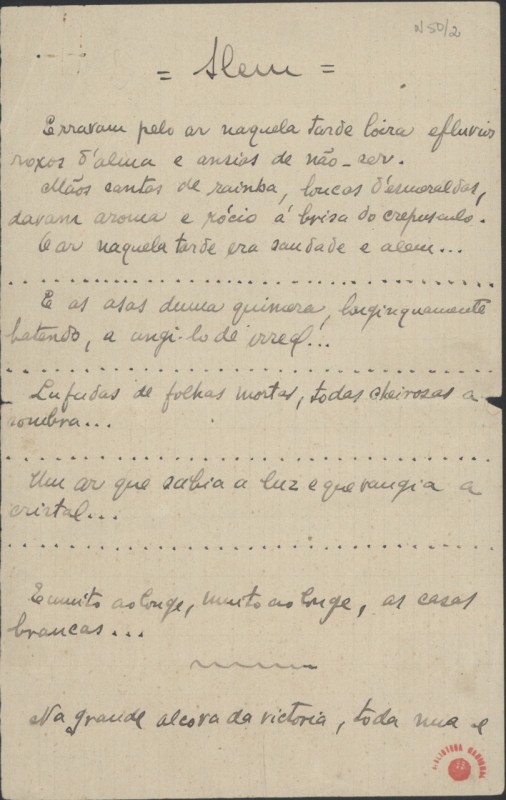 N50/2
= Alem =
Erravam pelo ar naquela tarde loira efluvios
roxos d'alma e ansias de não-ser.
Mãos santas de rainha, loucas d'esmeraldas,
davam aroma e rócio á brisa do crepusculo.
O ar naquela tarde era saudade e alem...
E as asas duma quimera, longinquamente
batendo, a ungi-lo de irreal...
Lufadas de folhas mortas, todas cheirosas a
sombra...
Um ar que sabia a luz e que rangia a
cristal...
E muito ao longe, muito ao longe, as casas
brancas...
Na grande alcova da victoria, toda nua e
BIBLIOTECA NACIONAL